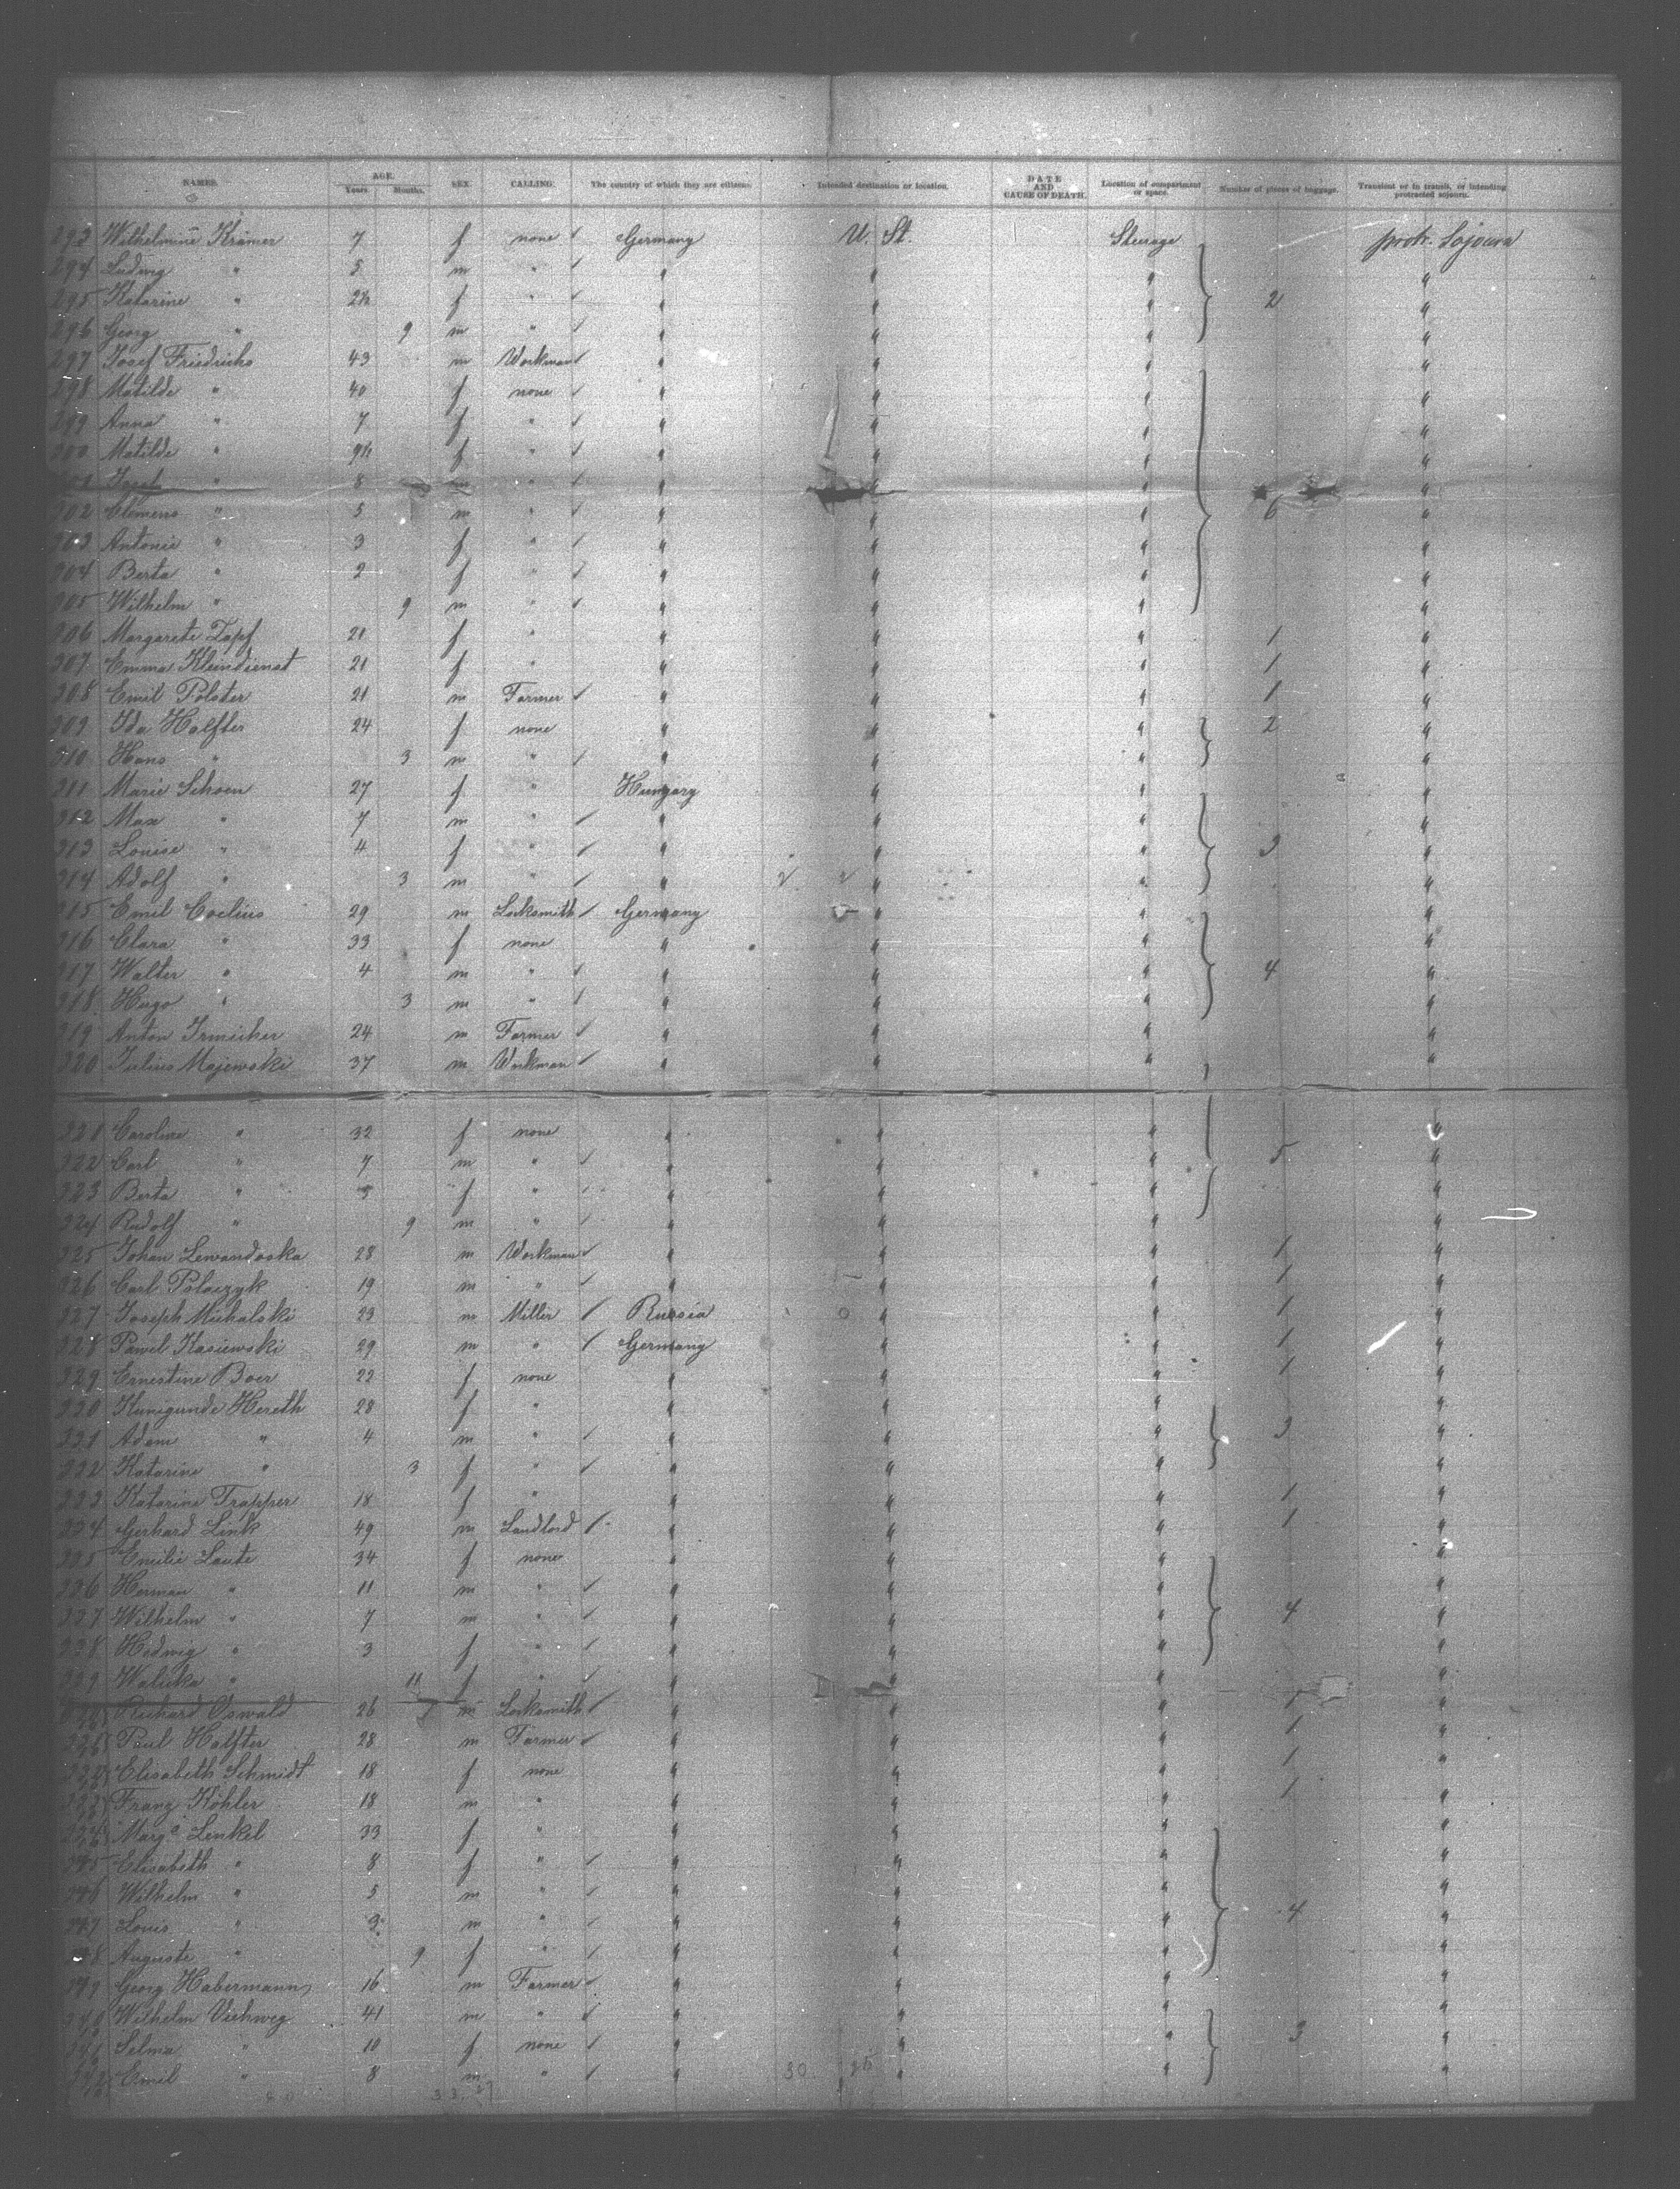 NAMES. AGE. Years. Months. SEX. CALLING. The country of which they are citizens. Intended destination or location. DATE AND CAUSE OF DEATH. Location of compartment or space. Number of pieces of baggage. Transient or in transit, or intending protracted sojourn.
293 Wilhelmine Krämer 7 f none Germany U. St. Steerage protr. Sojourn
294 Ludwig " 5 m " " " " "
295 Katarine " 2½ f " " " " 2 "
296 Georg " 9 m " " " " "
297 Josef Friedrichs 43 m Workman " " " "
298 Matilde " 40 f none " " " "
299 Anna " 7 f " " " " "
300 Matilde " 9½ f " " " " "
301 " 8 m " " " " "
302 Clemens " 5 m " " " " 6 "
303 Antonie " 3 f " " " " "
304 Berta " 2 f " " " " "
305 Wilhelm " 9 m " " " " "
306 Margarete Zapf 21 f " " " " 1 "
307 Emma Kleindienst 21 f " " " " 1 "
308 Emil Polster 21 m Farmer " " " 1 "
309 Ida Halfter 24 f none " " " 2 "
310 Hans " 3 m " " " " "
311 Marie Schoen 27 f " Hungary " " "
312 Max " 7 m " " " " "
313 Louise " 4 f " " " " 3 "
314 Adolf " 3 m " " " " "
315 Emil Coelius 29 m Locksmith Germany " " "
316 Clara " 33 f none " " " "
317 Walter " 4 m " " " " 4 "
318 Hugo " 3 m " " " " "
319 Anton 24 m Farmer " " " "
320 Julius Majewski 37 m Workman " " " "
321 Caroline " 32 f none " " " "
322 Carl " 7 m " " " " 5 "
323 Berta " 5 f " " " " "
324 Rudolf " 9 m " " " " "
325 Johan Lewandoska 28 m Workman " " " 1 "
326 Carl Polaczyk 19 m " " " " 1 "
327 Joseph Michalski 23 m Miller Russia " " 1 "
328 Pawel Kasiewski 29 m " Germany " " 1 "
329 Ernestine Boer 22 f none " " " 1 "
330 Kunigunde Hereth 28 f " " " " "
331 Adam " 4 m " " " " 3 "
332 Katarine " 3 f " " " " "
333 Katarine Trapper 18 f " " " " 1 "
334 Gerhard Link 49 m Landlord " " " 1 "
335 Emilie Laute 34 f none " " " "
336 Herman " 11 m " " " " "
337 Wilhelm " 7 m " " " " 4 "
338 Hedwig " 3 f " " " " "
339 Waleska " 11 f " " " " "
Richard Oswald 26 m Locksmith " " " 1 "
Paul Halfter 28 m Farmer " " " 1 "
Elisabeth Schmidt 18 f none " " " 1 "
Franz Köhler 18 m " " " " 1 "
Marg.a Lenkel 33 f " " " " "
Elisabeth " 8 f " " " " "
Wilhelm " 5 m " " " " "
Louis " 3 m " " " " 4 "
Auguste " 9 f " " " " "
Georg Habermann 16 m Farmer " " " "
Wilhelm Viehweg 41 m " " " " "
Selma " 10 f none " " " 3 "
Emil " 8 m " " " " "